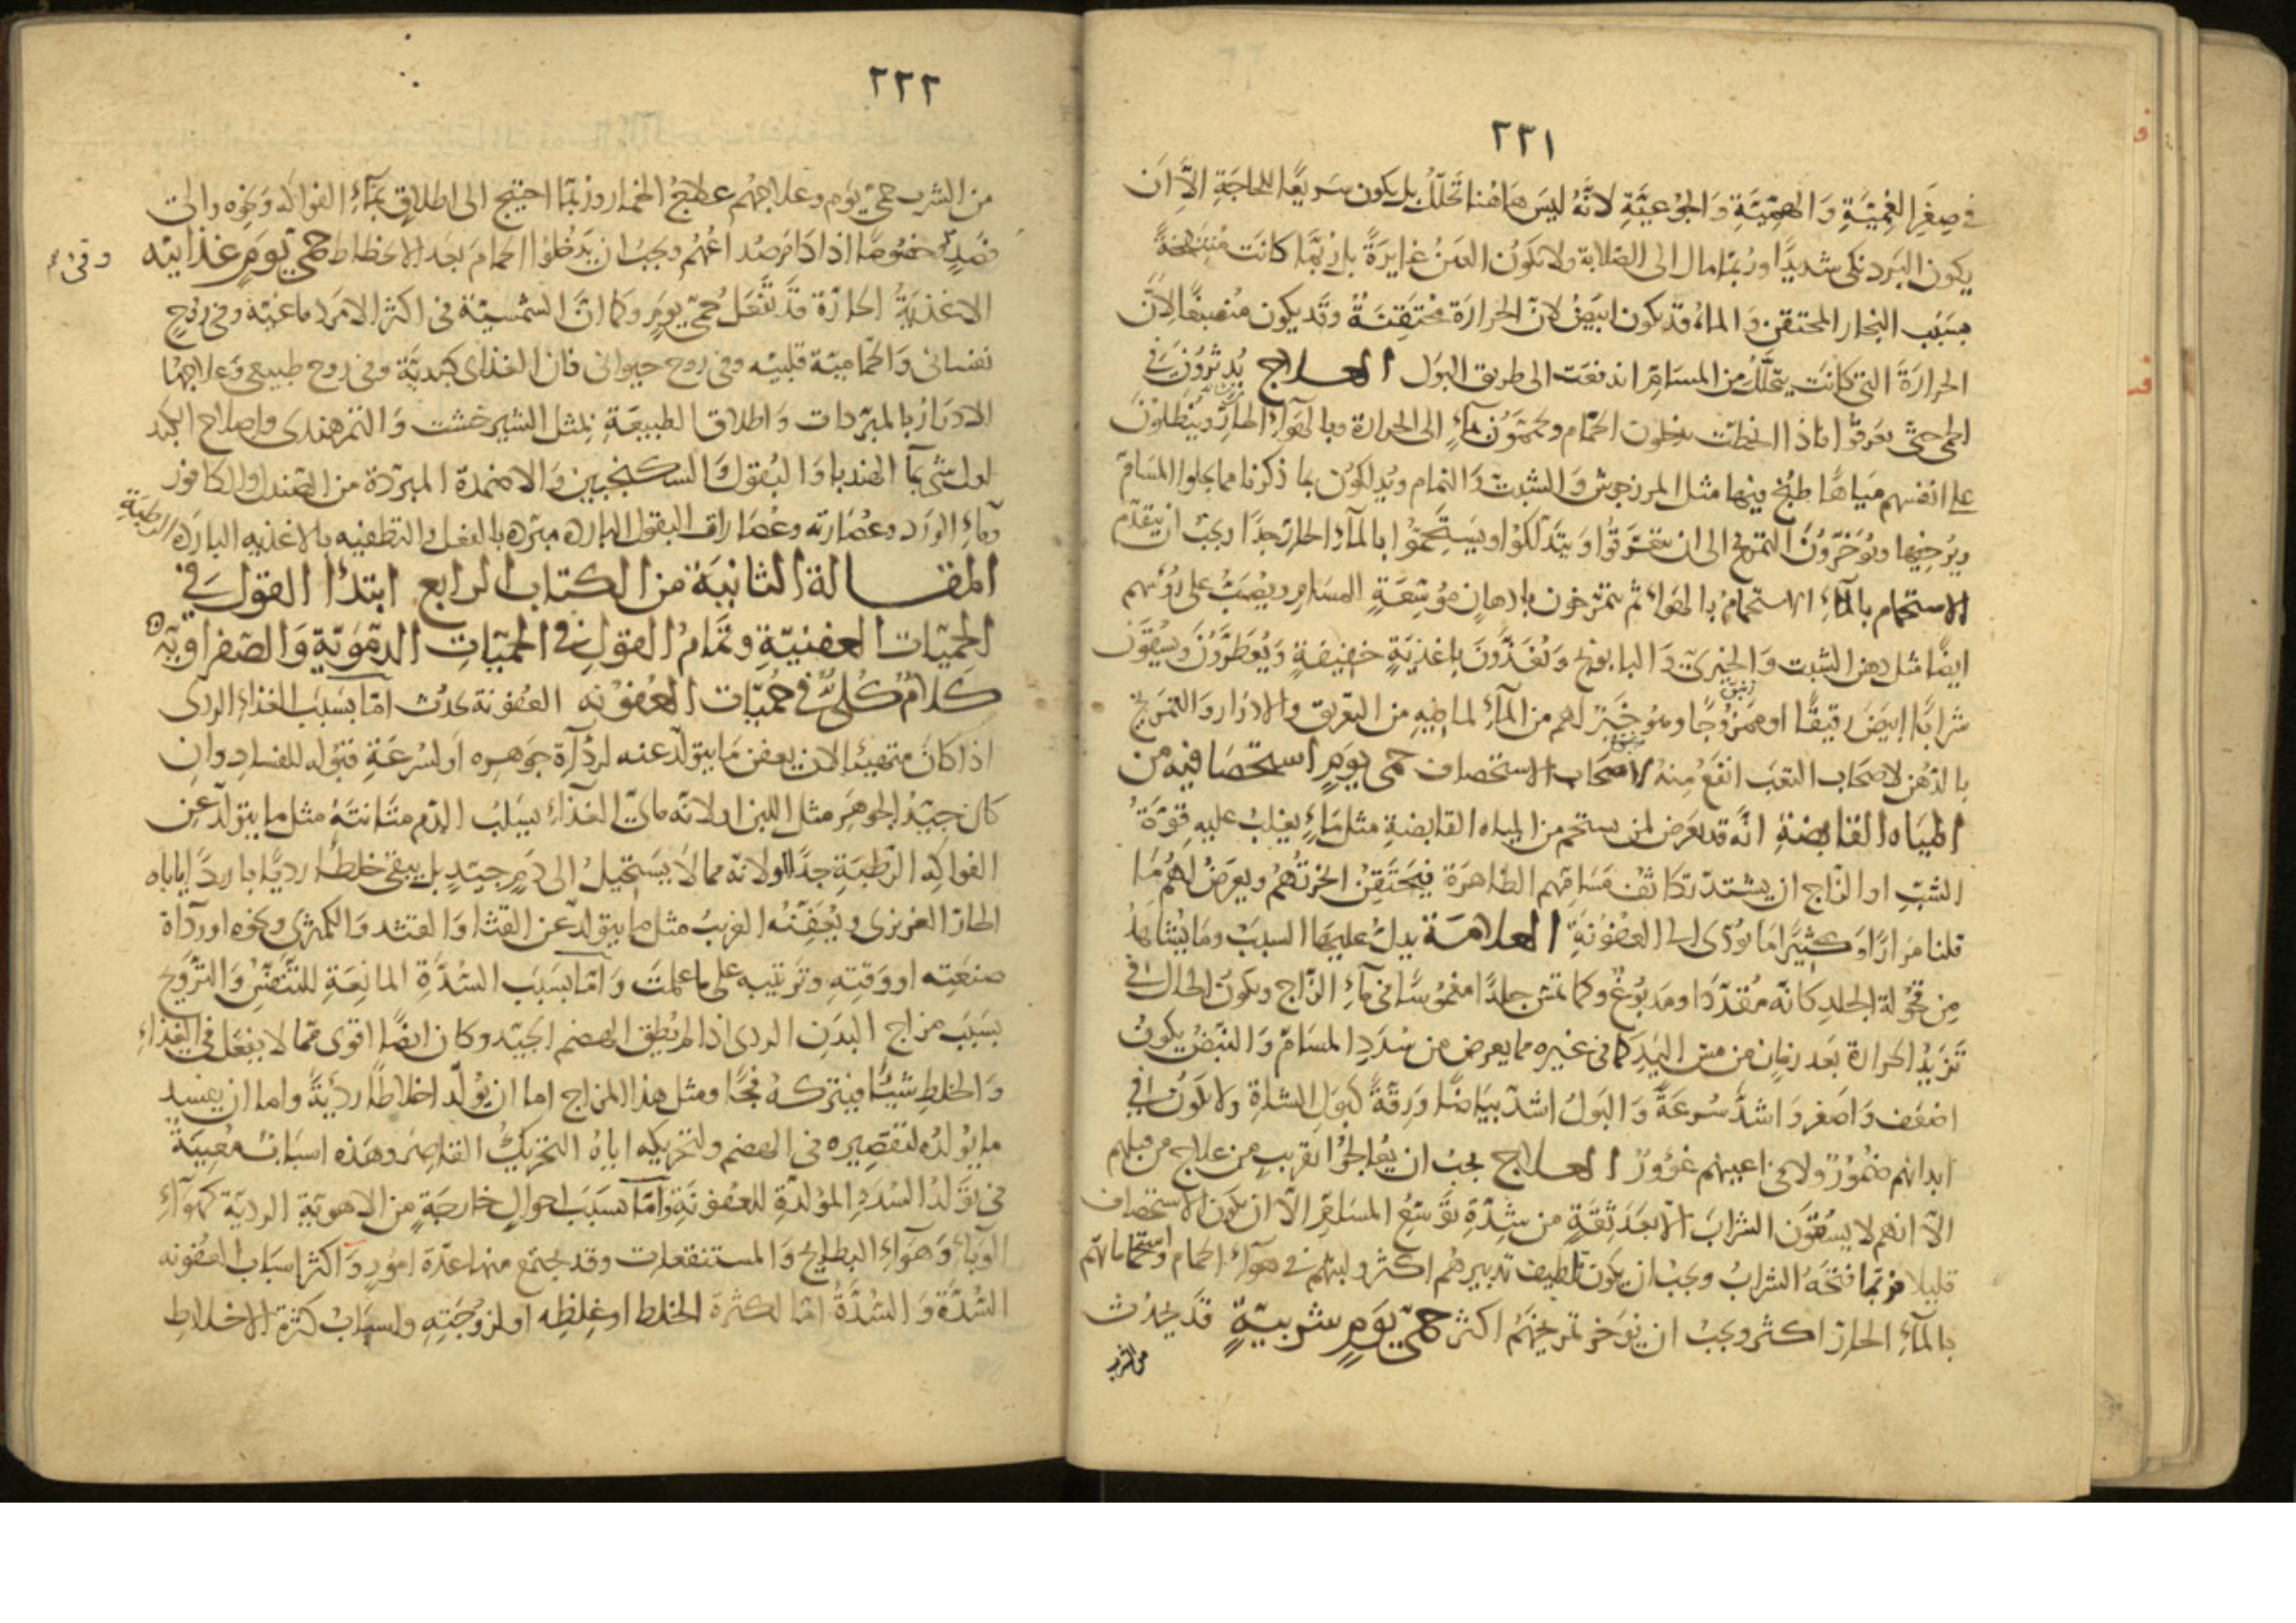 ٢٢١
في صغر الغميّة والهميّة والجوعيّة لانّه ليس هاهنا تحلّل بل يكون سريعا للحاجة الاّ ان
يكون البرد نكى شديدًا وربما مال الى الصلابة ولا تكون العين غايرة بل ربّما كانت منتفخة
بسبب البخار المحتقن والماء قد يكون ابيض لانّ الحرارة محتقنة وقد يكون منصبغا لانّ
الحرارة التي كانت يتحلّل من المسامّ اندفعت الى طريق البول العلاج يدثرون في
الحمى حتى يعرقوا فاذا انحطت يدخلون الحمّام ويحمّون بماء الى الحرارة وبالهواء الحارّ وينطلون
على انفسهم مياها طبخ فيها مثل المرزجوش والشبت والنمام ويدلكون بما ذكرنا مما يجلوا المسامّ
ويرخيها ويؤخّرون التمرّخ الى ان يتعرّقوا ويتدلّكوا ويستحمّوا بالماء الحارّ جدّا ويجب ان يتقدّم
الاستحمام بالماء الاستحمام بالهواء ثم يتمرّخون بادهان موسّعة المسام ويصبّ على رؤسهم
ايضا مثل دهن الشبت والخيرىّ والبابونج ويغذّون باغذية خفيفة ويعطّرون ويسقون
شرابا ابيض رقيقا او ممزوجا وهو خير لهم من الماء لما فيه من التعريق والادرار والتمريخ
بالدهن لاصحاب التعب انفع منه لاصحاب الاستحصاف حمى يوم استحصافية من
المياه القابضة انّه قد يعرض لمن يستحم من المياه القابضة مثل ماء يغلب عليه قوّة
الشبّ او الزّاج ان يشتدّ تكاثف مسامّهم الظاهرة فيحتقن ابخرتهم ويعرض لهم ما
قلنا مرارا وكثيرا ما يؤدى الى العفونة العلامة يدلّ عليها السبب وما يشاهد
من قحولة الجلد كانّه مقدّد او مدبوغ وكما تمسّ جلدا مغموسا في ماء الزّاج ويكون الحال في
تزيد الحرارة بعد زمان من مسّ اليد كما في غيره مما يعرض من سدد المسامّ والنبض يكون
اضعف واصغر واشدّ سرعة والبول اشدّ بياضا ورقة كبول الشاة ولا تكون في
ابدانهم ضمور ولا في اعينهم غؤور العلاج يجب ان يعالجوا بقريب من علاج من قبلهم
الاّ انهم لا يسقون الشراب الا بعد ثقة من شدّة توسّع المسامّ الاّ ان يكون الاستحصاف
قليلا فربّما فتحه الشراب ويجب ان يكون تلطيف تدبيرهم اكثر ولبثهم في هواء الحمام واستحماماتهم
بالماء الحارّ اكثر ويجب ان يؤخر تمريخهم اكثر حمى يوم شربية قد يحدث
من الشرب
٢٢٢
من الشرب حمى يوم وعلاجهم علاج الخمار وربّما احتيج الى اطلاق بماء الفواكه ونحوه والى
فصد خصوصا اذا دام صداعهم ويجب ان يدخلوا الحمام بعد الانحطاط حمى يوم غذايّة
الاغذية الحارّة قد تفعل حمى يوم وكما انّ الشمسيّة في اكثر الامر دماغيّة وفي روح
نفسانى والحمّامية قلبيّه وفي روح حيوانى فان الغذاى كبديّة وفي روح طبيعى وعلاجها
الادرار بالمبرّدات واطلاق الطبيعة بمثل الشيرخشت والتمرهندى واصلاح الكبد
اول شى بماء الهندبا والبقول والسكنجبين والاضمدة المبرّدة من الصندل والكافور
وماء الورد وعصارته وعصارات البقول البارده مبرّده بالفعل والتطفيه بالاغذيه الباردة الرطبة
المقالة الثانية من الكتاب الرابع ابتدأ القول في
الحميات العفنيّة وتمام القول في الحميّات الدمويّة والصفراويّة
كلام كلىّ في حميّات العفونه العفونة تحدث امّا بسبب الغذاء الردى
اذا كان متهيئا لان يعفن ما يتولّد عنه لرداءة جوهره او لسرعة قبوله للفساد وان
كان جيّد الجوهر مثل اللبن او لانّه مائىّ الغذاء يسلب الدم متانته مثل ما يتولّد عن
الفواكه الرّطبة جدّا او لانّه مما لا يستحيل الى دم جيد بل يبقى خلطا رديّا باردا ياباه
الحارّ الغريزى ويعفنه الغريب مثل ما يتولّد عن القثا والقثد والكمثرى ونحوه او رداءة
صنعته او وقته وترتيبه على ما علمت وامّا بسبب السّدّة المانعة للتنفّس والترويح
بسبب مزاج البدن الردى اذا لم يطق الهضم الجيّد وكان ايضا اقوى ممّا لا يفعل في الغذاء
والخلط شيئا فيتركه فجّا ومثل هذا المزاج اما ان يولّد اخلاطا رديّة واما ان يفسد
ما يولده لتقصيره في الهضم ولتحريكه اياه التحريك القاصر وهذه اسباب معينة
في تولّد السدد المولّدة للعفونة وامّا بسبب احوال خارجة من الاهوية الرديّة كهواء
الوباء وهواء البطايح والمستنقعات وقد يجتمع منها عدّة امور واكثر اسباب العفونه
السّدّة والسّدّة امّا لكثرة الخلط او غلظه او لزوجته واسباب كثرة الاخلاط